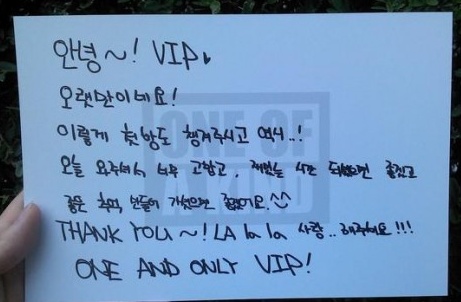 안녕~! VIP♥
오랫만이네요!
이렇게 첫방도 챙겨주시고 역시..!
오늘 와주셔서 너무 고맙고, 재밌는 시간 되셨으면 좋겠고
좋은 추억 만들어 가셨으면 좋겠어요. ^^
THANK YOU~! LA la la 사랑.. 해주세요!!!
ONE AND ONLY VIP!
ONE OF
A KIND